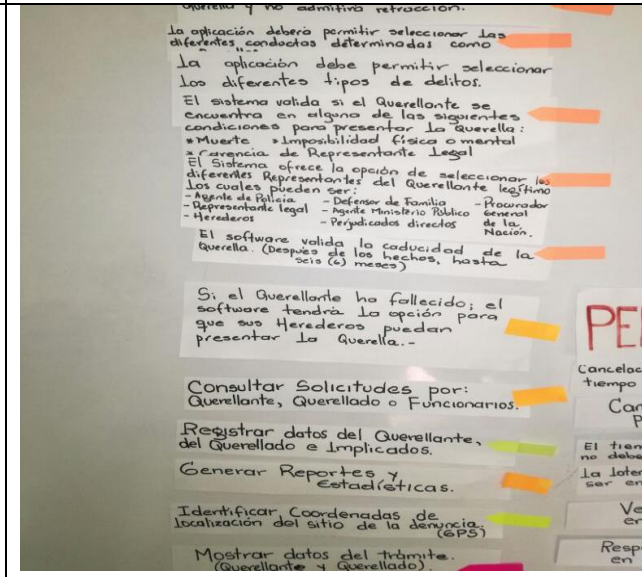 Querella y no admitirá retracción.
La aplicación deberá permitir seleccionar las
diferentes conductas determinadas como
La aplicación debe permitir seleccionar
los diferentes tipos de delitos.
El sistema valida si el Querellante se
encuentra en alguna de las siguientes
condiciones para presentar la Querella:
*Muerte *Imposibilidad física o mental
*Carencia de Representante Legal
El Sistema ofrece la opción de seleccionar los
diferentes Representantes del Querellante legítimo
los cuales pueden ser:
- Agente de Policía - Defensor de Familia - Procurador
- Representante legal - Agente Ministerio Público General
- Herederos - Perjudicados directos de la
Nación.
El software valida la caducidad de la
Querella. (Después de los hechos, hasta
seis (6) meses)
Si el Querellante ha fallecido; el
software tendrá la opción para
que sus Herederos puedan
presentar la Querella.-
Consultar Solicitudes por:
Querellante, Querellado o Funcionarios.
Registrar datos del Querellante,
del Querellado e Implicados.
Generar Reportes y
Estadísticas.
Identificar Coordenadas de
localización del sitio de la denuncia.
(GPS)
Mostrar datos del trámite.
(Querellante y Querellado).
Cancelac
tiempo
Can
P
El tiem
no debe
La laten
ser en
Ve
en
Resp
en